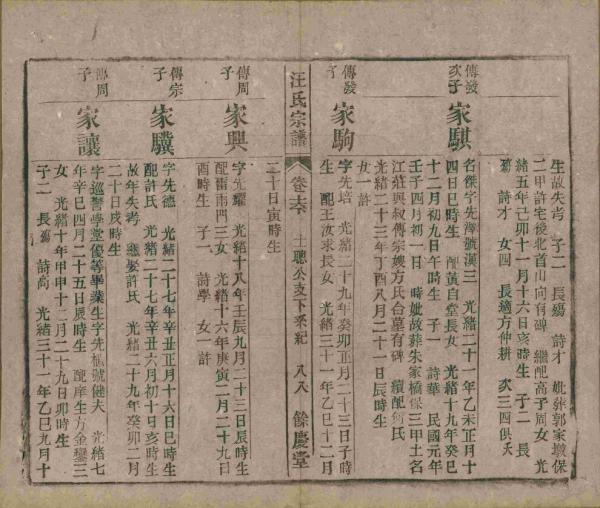 生故失考 子二 長蕩 詩才 妣葬郭家墩保
二甲許宅後北首山向有碑 繼配高子周女 光
緒五年己卯十一月十六日亥時生 子二 長
蕩 詩才 女四 長適方仲耕 次三四俱夭
傳發
次子
家騏
名傑字先濤號漢三 光緒二十一年乙未正月十
四日巳時生 配黃自堂長女 光緒十九年癸巳
十二月初九日午時生 子一 詩華 民國元年
壬子四月初一日 時妣故葬朱家橋保三甲土名
江莊與叔傳宗嫂方氏合墓有碑 續配衛氏
光緒二十三年丁酉八月二十一日辰時生
女一許
傳發
子
家駒
字先培 光緒二十九年癸卯正月二十三日子時
生 配王汝求長女 光緒三十一年乙巳十二月
汪氏宗譜
卷六 士聰公支下系紀 八八 餘慶堂
二十日寅時生
傳周
子
家興
字先耀 光緒十八年壬辰九月二十三日辰時生
配雷雨門三女 光緒十六年庚寅二月二十九日
酉時生 子一 詩學 女一許
傳宗
子
家驥
字先德 光緒二十七年辛丑正月十六日巳時生
配許氏 光緒二十七年辛丑六月初十日亥時生
故年失考 繼娶許氏 光緒二十九年癸卯二月
二十日戌時生
傳周
子
家讓
字巡警學堂優等畢業生字先樵號健夫 光緒七
年辛巳四月二十五日辰時生 配庠生方金鑾三
女 光緒十年甲申十二月二十九日卯時生
子二 長蕩 詩高 光緒三十一年乙巳九月十